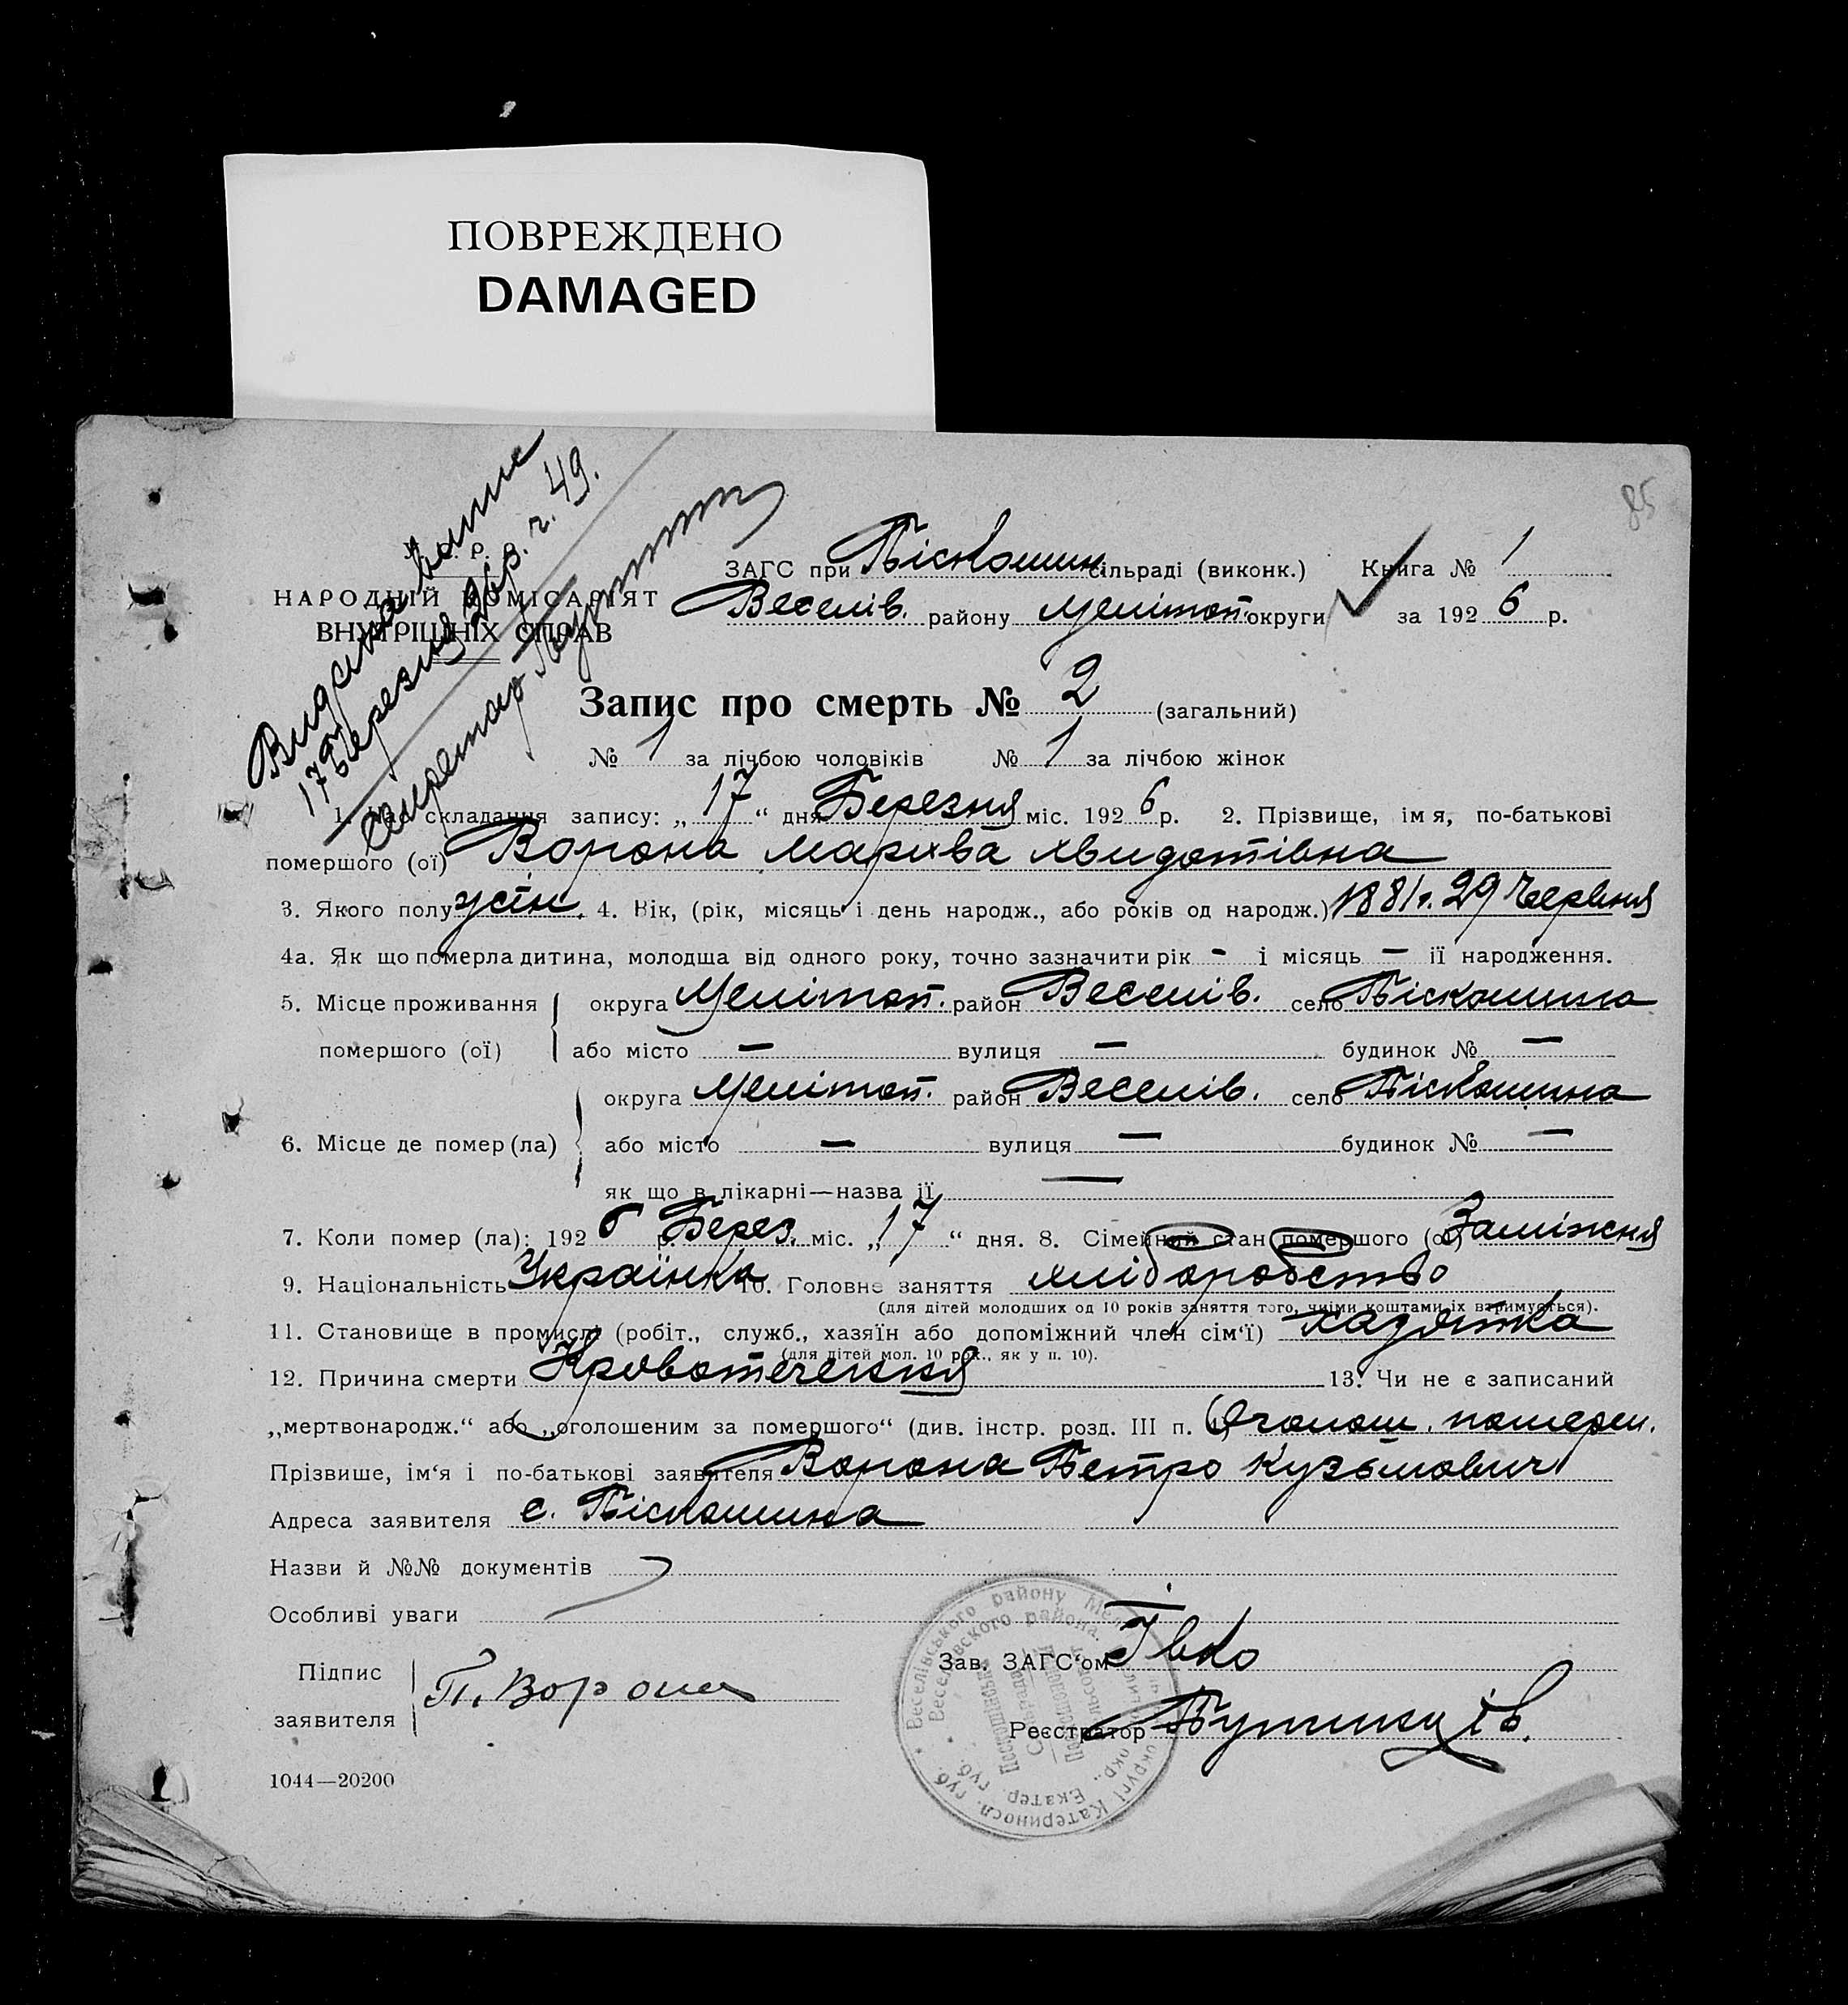 ПОВРЕЖДЕНО
DAMAGED
85
Видана
17 березня 26 р. ч. 49.
Секретар
НАРОДНІЙ КОМІСАРІЯТ
ВНУТРІШНІХ СПРАВ
ЗАГС при Піскошин. сільраді (виконк.) Книга № 1
Веселів. району Мелітоп. округи за 1926 р.
Запис про смерть № 2 (загальний)
№ 1 за лічбою чоловіків № 1 за лічбою жінок
1. Час складання запису: „17“ дня Березня міс. 1926 р. 2. Прізвище, імя, по-батькові
помершого (ої) Ворона Мархва Хвидотівна
3. Якого полу жін. 4. Вік, (рік, місяць і день народж., або років од народж.) 1881 р. 29 Червня
4а. Як що померла дитина, молодша від одного року, точно зазначити рік - і місяць - її народження.
5. Місце проживання округа Мелітоп. район Веселів. село Піскошина
помершого (ої) або місто — вулиця — будинок № —
округа Мелітоп. район Веселів. село Піскошина
6. Місце де помер (ла) або місто — вулиця — будинок № —
як що в лікарні—назва її —
7. Коли помер (ла): 1926 р. Берез. міс. „17“ дня. 8. Сімейний стан помершого (ої) Заміжня
9. Національність Українка 10. Головне заняття хліборобство
(для дітей молодших од 10 років заняття того, чиїми коштами їх втримується).
11. Становище в промислі (робіт., служб., хазяїн або допоміжний член сім‘ї) хазяйка
(для дітей мол. 10 рок., як у п. 10).
12. Причина смерти Кровотечення 13. Чи не є записаний
„мертвонародж.“ або „оголошеним за помершого“ (див. інстр. розд. III п. Оголош. померш.
Прізвише, ім‘я і по-батькові заявителя Ворона Петро Кузьмович
Адреса заявителя с. Піскошина
Назви й №№ документів
Особливі уваги
Зав. ЗАГС‘ом Івко
Підпис
заявителя П. Ворона
Реєстратор
1044—20200
Веселівського району Меліт округі Катериносл. губ.
Веселовского района. окр., Екатер. губ.